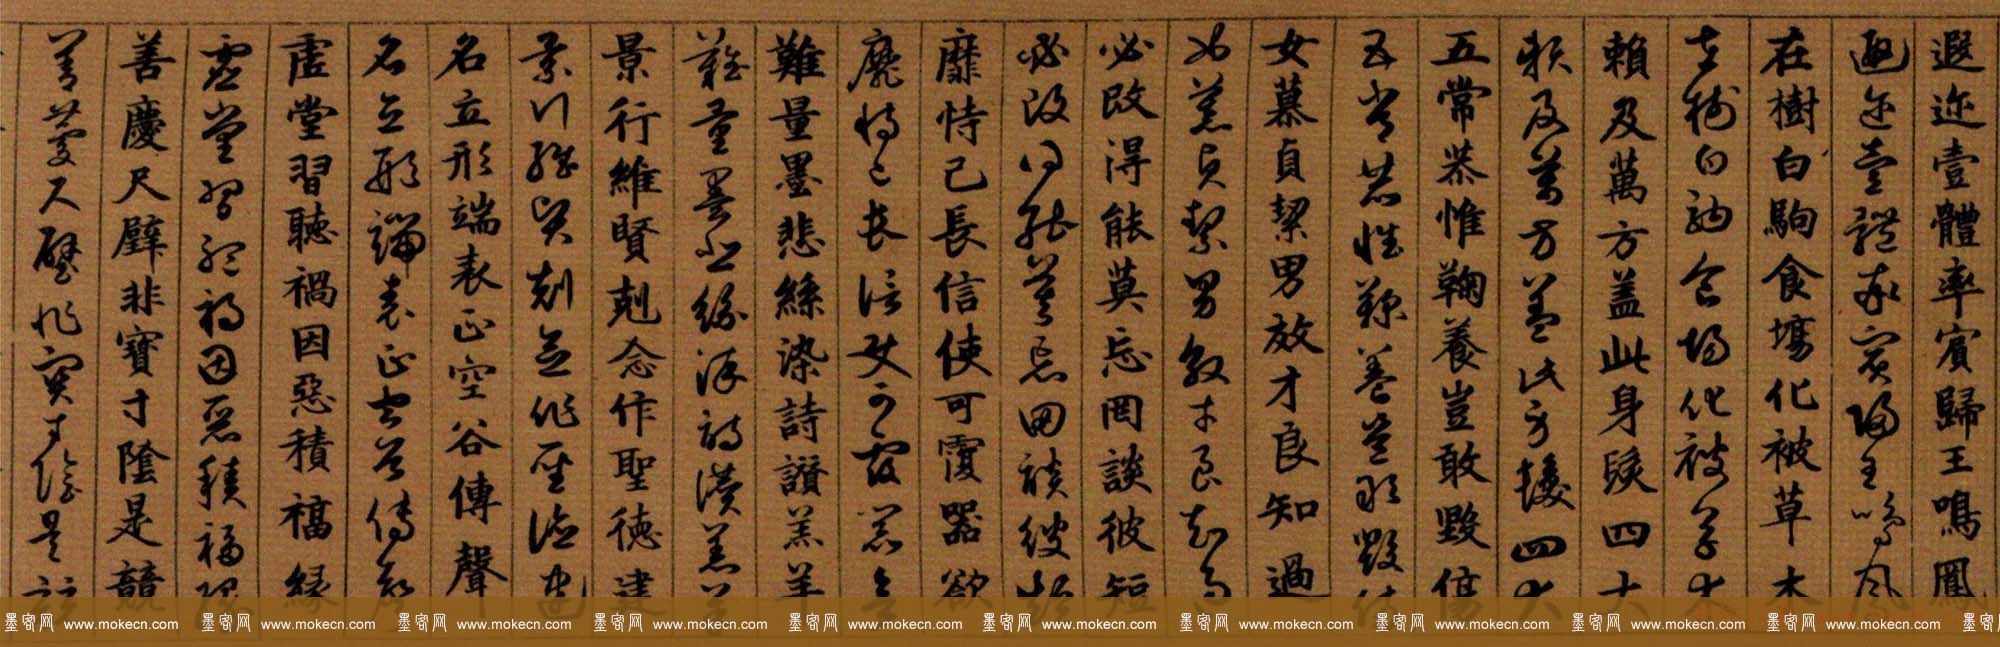 遐迩壹體率賓歸王鳴鳳
遐迩壹體率賓歸王鳴鳳
在樹白駒食場化被草木
在樹白駒食場化被草木
賴及萬方盖此身髮四大
賴及萬方盖此身髮四大
五常恭惟鞠養豈敢毀傷
五常恭惟鞠養豈敢毀傷
女慕貞絜男效才良知過
女慕貞絜男效才良知過
必改得能莫忘罔談彼短
必改得能莫忘罔談彼短
靡恃己長信使可覆器欲
靡恃己長信使可覆器欲
難量墨悲絲染詩讃羔羊
難量墨悲絲染詩讃羔羊
景行維賢剋念作聖德建
景行維賢剋念作聖德建
名立形端表正空谷傳聲
名立形端表正空谷傳聲
虛堂習聽禍因惡積福緣
虛堂習聽禍因惡積福緣
善慶尺璧非寶寸陰是競
善慶尺璧非寶寸陰是競
墨密网 www.mokecn.com 墨密网 www.mokecn.com 墨密网 www.mokecn.com 墨密网 www.mokecn.com 墨密网 www.mokecn.com 墨密网 www.mokecn.com 墨密网 www.mokecn.com 墨密网 www.mokecn.com 墨密网 www.mokecn.com 墨密网 www.mokecn.com 墨密